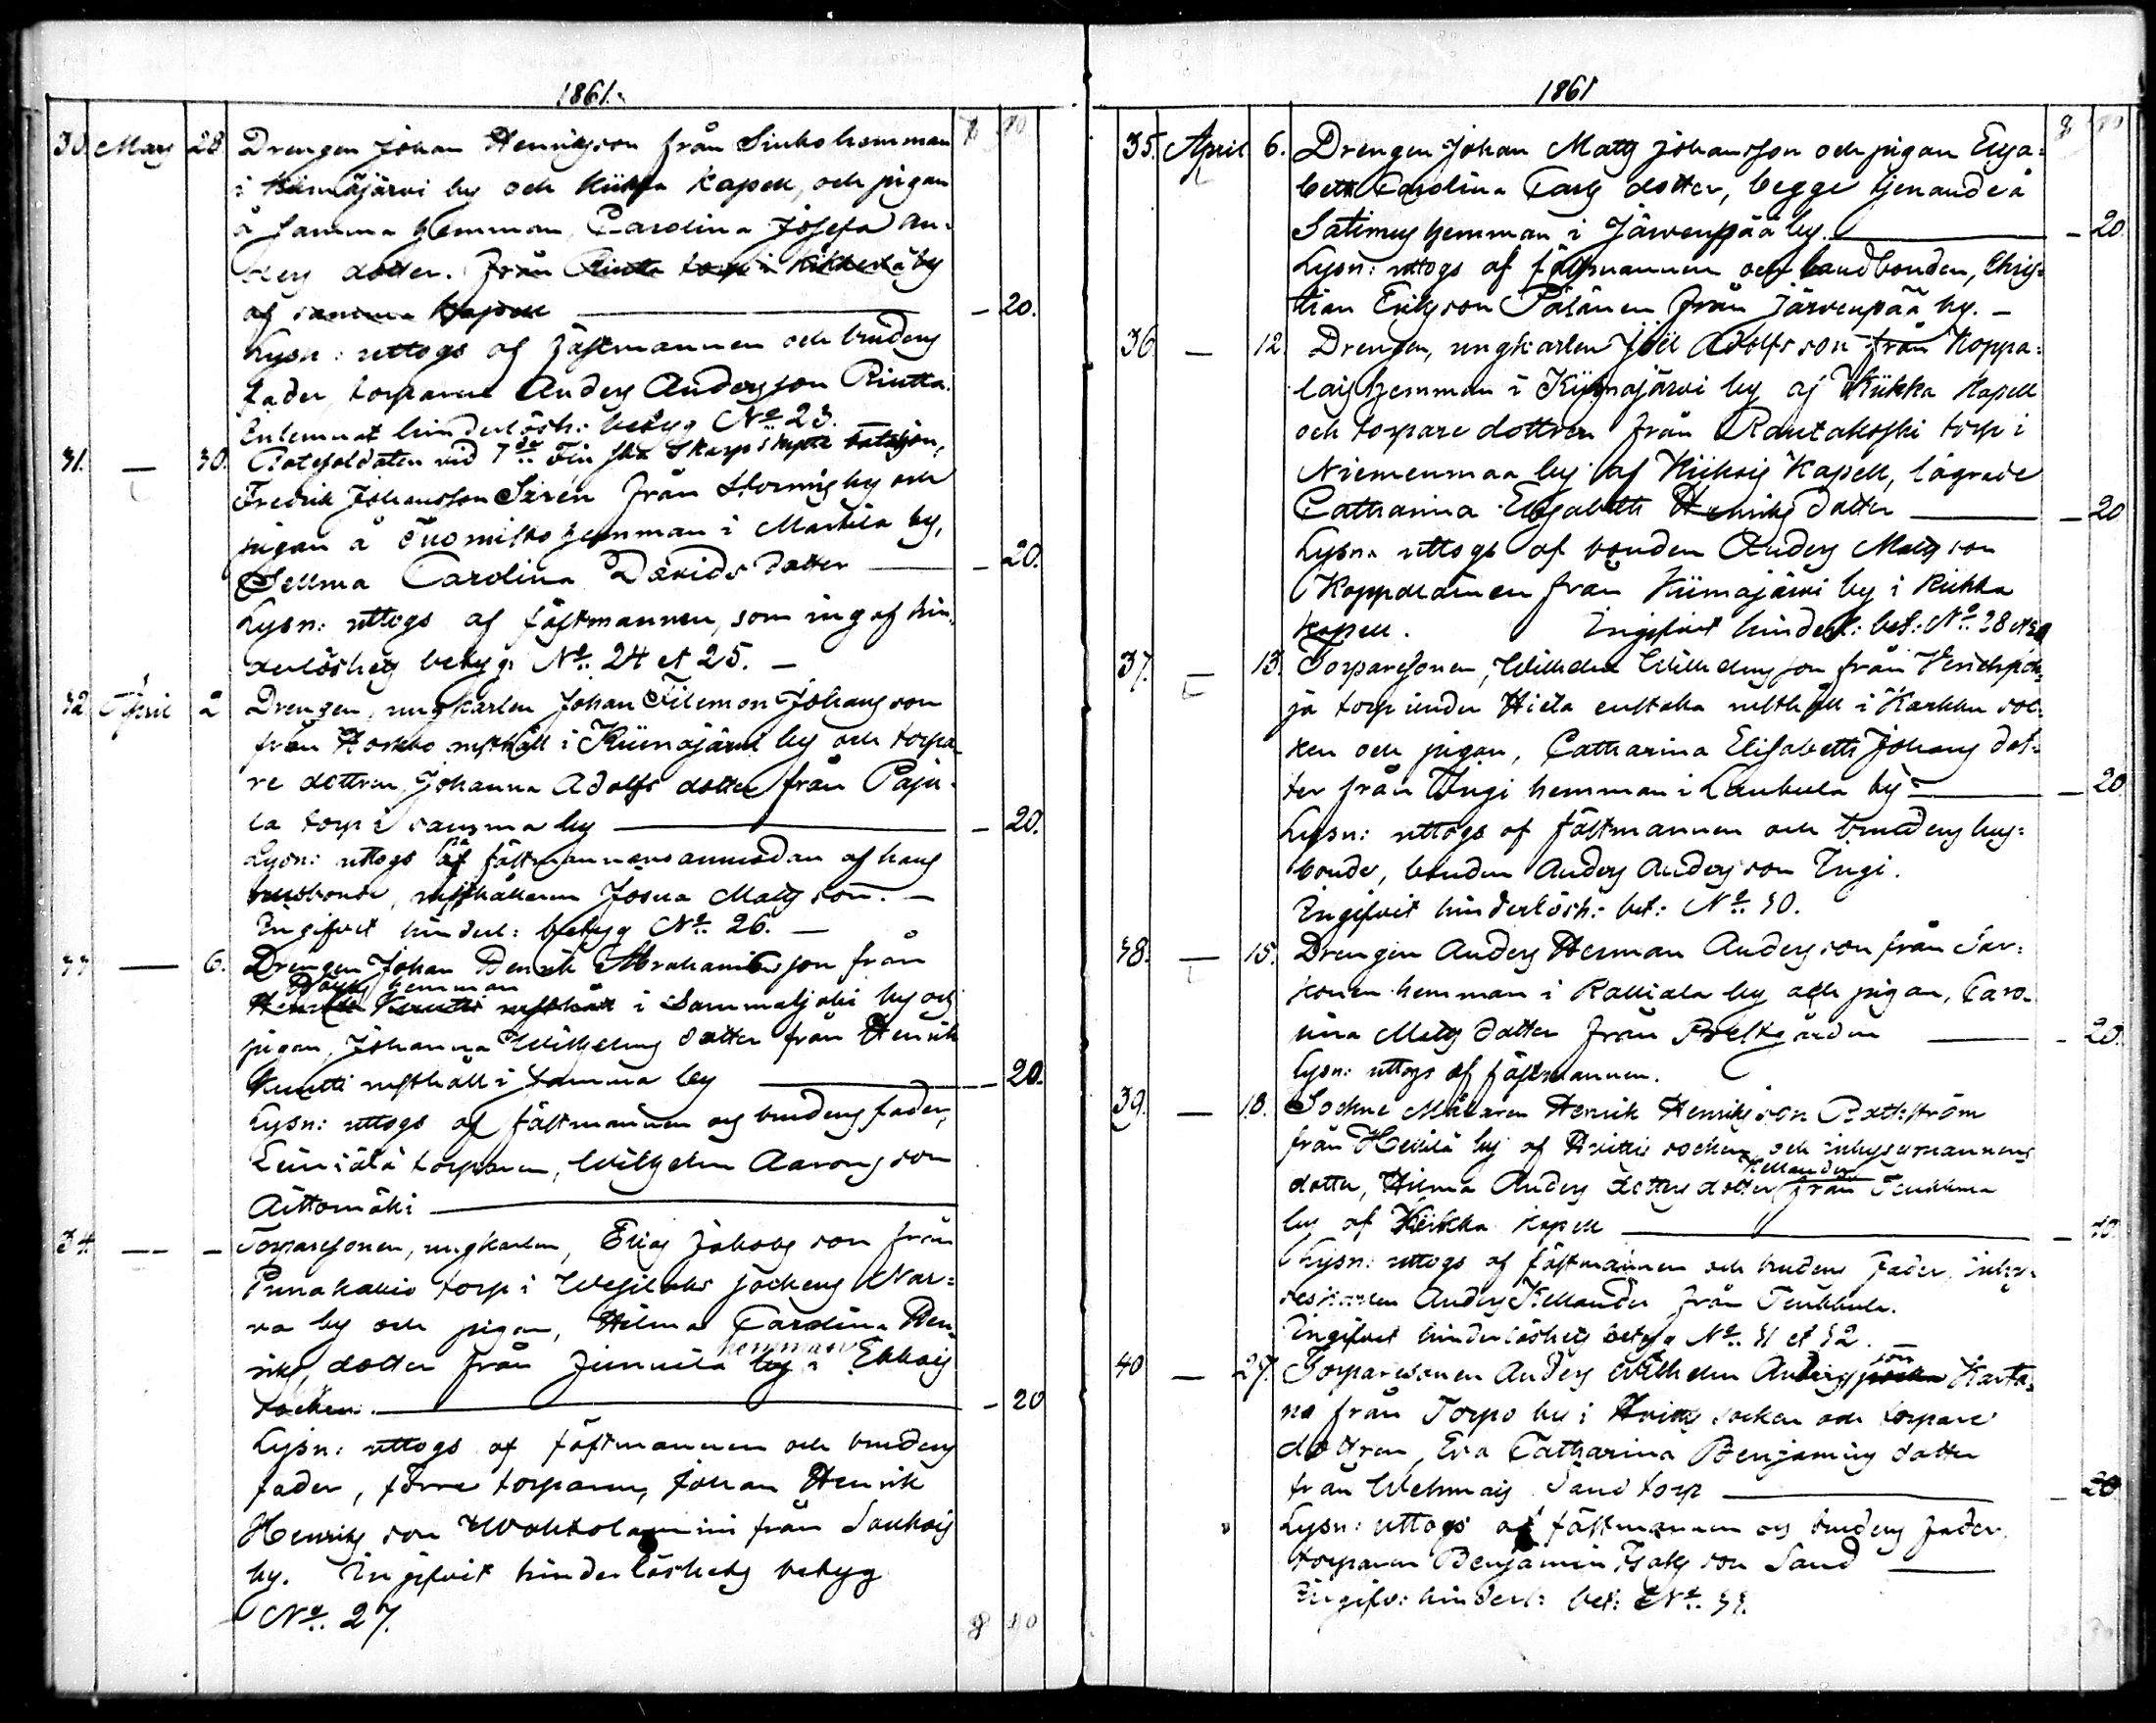 1861.
30. Mars 28 Drengen Johan Henriksson från Sinko hemman
i Kiimajärvi by och Kiikka Kapell, och pigan
å samma hemman, Carolina Josefa An-
ders dotter. från Rintta torp i Kikkerlä by
af samma Kapell — 20.
Lysn: uttogs af fästmannen och brudens
fader, torparen Anders Andersson Rintta.
Inlemnat hinderlösh: betyg No 23.
31. — 30. Rotesoldaten vid 7de Finska Skarpskytte bataljon,
Fredrik Johansson Sirén från Storning by och
pigan å Tuomisto hemman i Markila by,
Sellma Carolina Davids dotter — 20.
Lysn: uttogs af fästmannen, som ingaf hin-
derlöshets betyg No. 24 et 25. —
32. April 2 Drengen, ungkarlen Johan Filemon Johansson
från Horkko rusthåll i Kiimajärvi by och torpa-
re dottren Johanna Adolfs dotter från Paju-
la torp i samma by — 20.
Lysn: uttogs på fästmannens anmodan af hans
husbonde, rusthållaren Josua Matsson. —
Ingifvit hinderl: betyg No. 26. —
33 — 6. Drengen Johan Henrik Abrahamsson från
hemman
Henrik Knutti rusthåll i Sammaljoki by och
pigan, Johanna Wilhelms dotter från Henrik
Knutti rusthåll i samma by — 20.
Lysn: uttogs af fästmannen och brudens fader,
torparen, Wilhelm Aaronsson
Aittomäki —
34 — — Torparesonen, ungkarlen, Elias Jakobsson från
Punakallio torp i Wesilaks sockens Nar-
va by och pigan, Hilma Carolina Hen-
hemman
riks dotter från Junnila by i Ekkois
socken. — 20
Lysn: uttogs af fästmannen och brudens
fader, förre torparen, Johan Henrik
Henriksson från Soukois
by. Ingifvit hinderlöshets betyg
No. 27.
1861
35. April 6. Drengen Johan Mats Johansson och pigan Elisa-
beth Carolina Carls dotter, begge tjenande å
Satimus hemman i Järvenpää by. — 20
Lysn: uttogs af fästmannen och landbonden, Chris-
tian Eriksson Pälänen från Järvenpää by. —
36 — 12. Drengen, ungkarlen Joel Adolfsson från Koppa-
lais hemman i Kiimajärvi by af Kiikka Kapell
och torpare dottren från Rautakoski torp i
Niemenmaa by af Kiikois Kapell, lägrade
Catharina Elisabeth Henriks dotter — 20
Lysn: uttogs af bonden Anders Matsson
Koppalainen från Kiimajärvi by i Kiikka
Kapell. Ingifvit hinderl: bet: No. 28 et 29
37. — 13. Torparesonen, Wilhelm Wilhelmsson från
ja torp under Hiela enstaka rusthåll i Karkku soc-
ken och pigan, Catharina Elisabeth Johans dot-
ter från Yngi hemman i Laukula by — 20
Lysn: uttogs af fästmannen och brudens hus-
bonde, bonden Anders Andersson Yngi.
Ingifvit hinderlösh: bet: No. 30.
38. — 15. Drengen Anders Herman Andersson från Sar-
konen hemman i Kalliala by och pigan, Caro-
lina Mats dotter från Prestgården — 20.
Lysn: uttogs af fästmannen.
39. — 18. Sockne Målaren Henrik Henriksson Rothström
från Heikilä by af Hvittis socken och inhysesmannens
Kellander
dotter, Hilma Anders dotter från Teukkula
by af Kiikka Kapell — 10.
Lysn: uttogs af fästmannen och brudens fader, inhy-
seskarlen Anders Kellander från Teukkula.
Ingifvit hinderlöshets betyg No. 31 et 32.
40 — 27. Torparesonen Anders Wilhelm Andersson Karta-
no från Torpo by i Hvittis socken och torpare
dottren, Eva Catharina Benjamins dotter
från Wehmais Sand torp — 20
Lysn: uttogs af fästmannen och brudens fader,
torparen Benjamin Isaksson Sand —
Ingifv: hinderl: bet: No. 33.